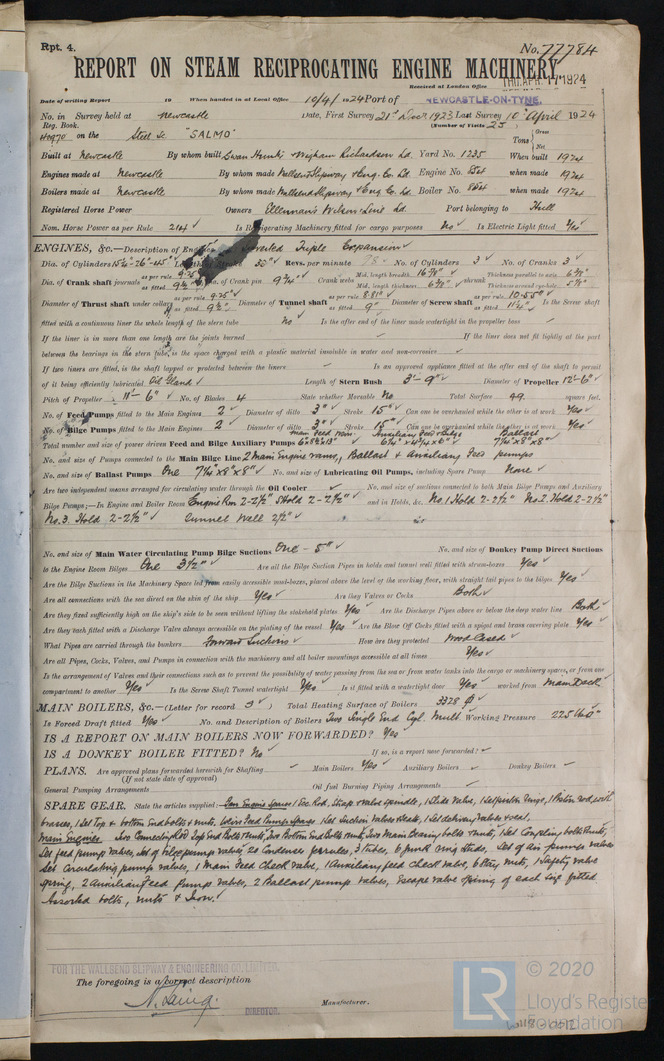 Rpt. 4.
No. 77784
REPORT ON STEAM RECIPROCATING ENGINE MACHINERY
Received at London Office THU. APR. 17 1924
Date of writing Report 19 When handed in at Local Office 10/4/1924 Port of NEWCASTLE-ON-TYNE.
No. in Survey held at Newcastle Date, First Survey 21st Decr 1923 Last Survey 10th April 1924
Reg. Book. (Number of Visits 25
40970 on the Steel Sc. "SALMO" Tons Gross Net
Built at Newcastle By whom built Swan Hunter & Wigham Richardson Ld. Yard No. 1235 When built 1924
Engines made at Newcastle By whom made Wallsend Slipway & Eng. Co. Ld. Engine No. 864 when made 1924
Boilers made at Newcastle By whom made Wallsend Slipway & Eng. Co. Ld. Boiler No. 864 when made 1924
Registered Horse Power Owners Ellerman's Wilson Line Ld. Port belonging to Hull
Nom. Horse Power as per Rule 214 Is Refrigerating Machinery fitted for cargo purposes No Is Electric Light fitted Yes
ENGINES, &c.—Description of Engines Inverted Triple Expansion
Dia. of Cylinders 15¼"-26"-45" Length of Stroke 30" Revs. per minute 78 No. of Cylinders 3 No. of Cranks 3
Dia. of Crank shaft journals as per rule 9.25" as fitted 9¾" Dia. of Crank pin 9¾" Crank webs Mid. length breadth 16⅝" Mid. length thickness 6⅝" shrunk Thickness parallel to axis 6⅝" Thickness around eye-hole
Diameter of Thrust shaft under collars as per rule 9.25" as fitted 9¾" Diameter of Tunnel shaft as per rule 8.81" as fitted 9" Diameter of Screw shaft as per rule 10.55" as fitted 11¼" Is the Screw shaft
fitted with a continuous liner the whole length of the stern tube No Is the after end of the liner made watertight in the propeller boss
If the liner is in more than one length are the joints burned If the liner does not fit tightly at the part
between the bearings in the stern tube, is the space charged with a plastic material insoluble in water and non-corrosive
If two liners are fitted, is the shaft lapped or protected between the liners Is an approved appliance fitted at the after end of the shaft to permit
of it being efficiently lubricated Oil Gland Length of Stern Bush 3'-9" Diameter of Propeller 12'-6"
Pitch of Propeller 11'-6" No. of Blades 4 State whether Moveable No Total Surface 49 square feet.
No. of Feed Pumps fitted to the Main Engines 2 Diameter of ditto 3" Stroke 15" Can one be overhauled while the other is at work Yes
No. of Bilge Pumps fitted to the Main Engines 2 Diameter of ditto 3" Stroke 15" Can one be overhauled while the other is at work Yes
Total number and size of power driven Feed and Bilge Auxiliary Pumps Ballast 7¼"x8"x8"
No. and size of Pumps connected to the Main Bilge Line 2 Main Engine rams, Ballast & Auxiliary Feed pumps
No. and size of Ballast Pumps One 7¼"x8"x8" No. and size of Lubricating Oil Pumps, including Spare Pump None
Are two independent means arranged for circulating water through the Oil Cooler No. and size of suctions connected to both Main Bilge Pumps and Auxiliary
Bilge Pumps;—In Engine and Boiler Room Engine Rm 2-2½" Shold 2-2½" and in Holds, &c. No. 1 Hold 2-2½" No. 2 Hold 2-2½"
No. 3. Hold 2-2½" Tunnel Well 2½"
No. and size of Main Water Circulating Pump Bilge Suctions One - 5" No. and size of Donkey Pump Direct Suctions
to the Engine Room Bilges One 3½" Are all the Bilge Suction Pipes in holds and tunnel well fitted with strum-boxes Yes
Are the Bilge Suctions in the Machinery Space led from easily accessible mud-boxes, placed above the level of the working floor, with straight tail pipes to the bilges Yes
Are all connections with the sea direct on the skin of the ship Yes Are they Valves or Cocks Both
Are they fixed sufficiently high on the ship's side to be seen without lifting the stokehold plates Yes Are the Discharge Pipes above or below the deep water line Both
Are they each fitted with a Discharge Valve always accessible on the plating of the vessel Yes Are the Blow Off Cocks fitted with a spigot and brass covering plate Yes
What Pipes are carried through the bunkers Forward Suctions How are they protected Wood Cased
Are all Pipes, Cocks, Valves, and Pumps in connection with the machinery and all boiler mountings accessible at all times Yes
Is the arrangement of Valves and their connections such as to prevent the possibility of water passing from the sea or from water tanks into the cargo or machinery spaces, or from one
compartment to another Yes Is the Screw Shaft Tunnel watertight Yes Is it fitted with a watertight door Yes worked from Main Deck
MAIN BOILERS, &c.—(Letter for record S) Total Heating Surface of Boilers 3328
Is Forced Draft fitted Yes No. and Description of Boilers Two Single End Cyl. Mult. Working Pressure 225 lbs
IS A REPORT ON MAIN BOILERS NOW FORWARDED? Yes
IS A DONKEY BOILER FITTED? No If so, is a report now forwarded?
PLANS. Are approved plans forwarded herewith for Shafting Main Boilers Yes Auxiliary Boilers Donkey Boilers
(If not state date of approval)
General Pumping Arrangements Oil fuel Burning Piping Arrangements
SPARE GEAR. State the articles supplied:— Fan Engine Spares 1 Ecc. Rod, Strap & valve spindle, 1 Slide Valve, 1 Set piston rings, 1 Piston rod, with
brasses, 1 Set Top & bottom End bolts & nuts, Feed Pump Spares 1 Set Suction Valves & seats, 1 Set delivery valves & seats,
Main Engines Two Connecting Rod Top End Bolts & nuts, Two Bottom End Bolts & nuts, Two Main bearing bolts & nuts, 1 Set Coupling bolts & nuts,
Set feed pump valves, Set of bilge pump valves, 20 Condenser ferrules, 3 tubes, 6 junk ring studs, Set of Air pump valves
Set Circulating pump valves, 1 Main Feed Check valve, 1 Auxiliary feed check valve, nuts, 1 Safety valve
spring, 2 Auxiliary Feed Pump valves, 2 Ballast pump valves, Escape valve spring of each size fitted
Assorted bolts, nuts & Iron.
FOR THE WALLSEND SLIPWAY & ENGINEERING CO. LIMITED.
The foregoing is a correct description
N. Laing. DIRECTOR. Manufacturer.
LR
© 2020
Lloyd's Register
Foundation